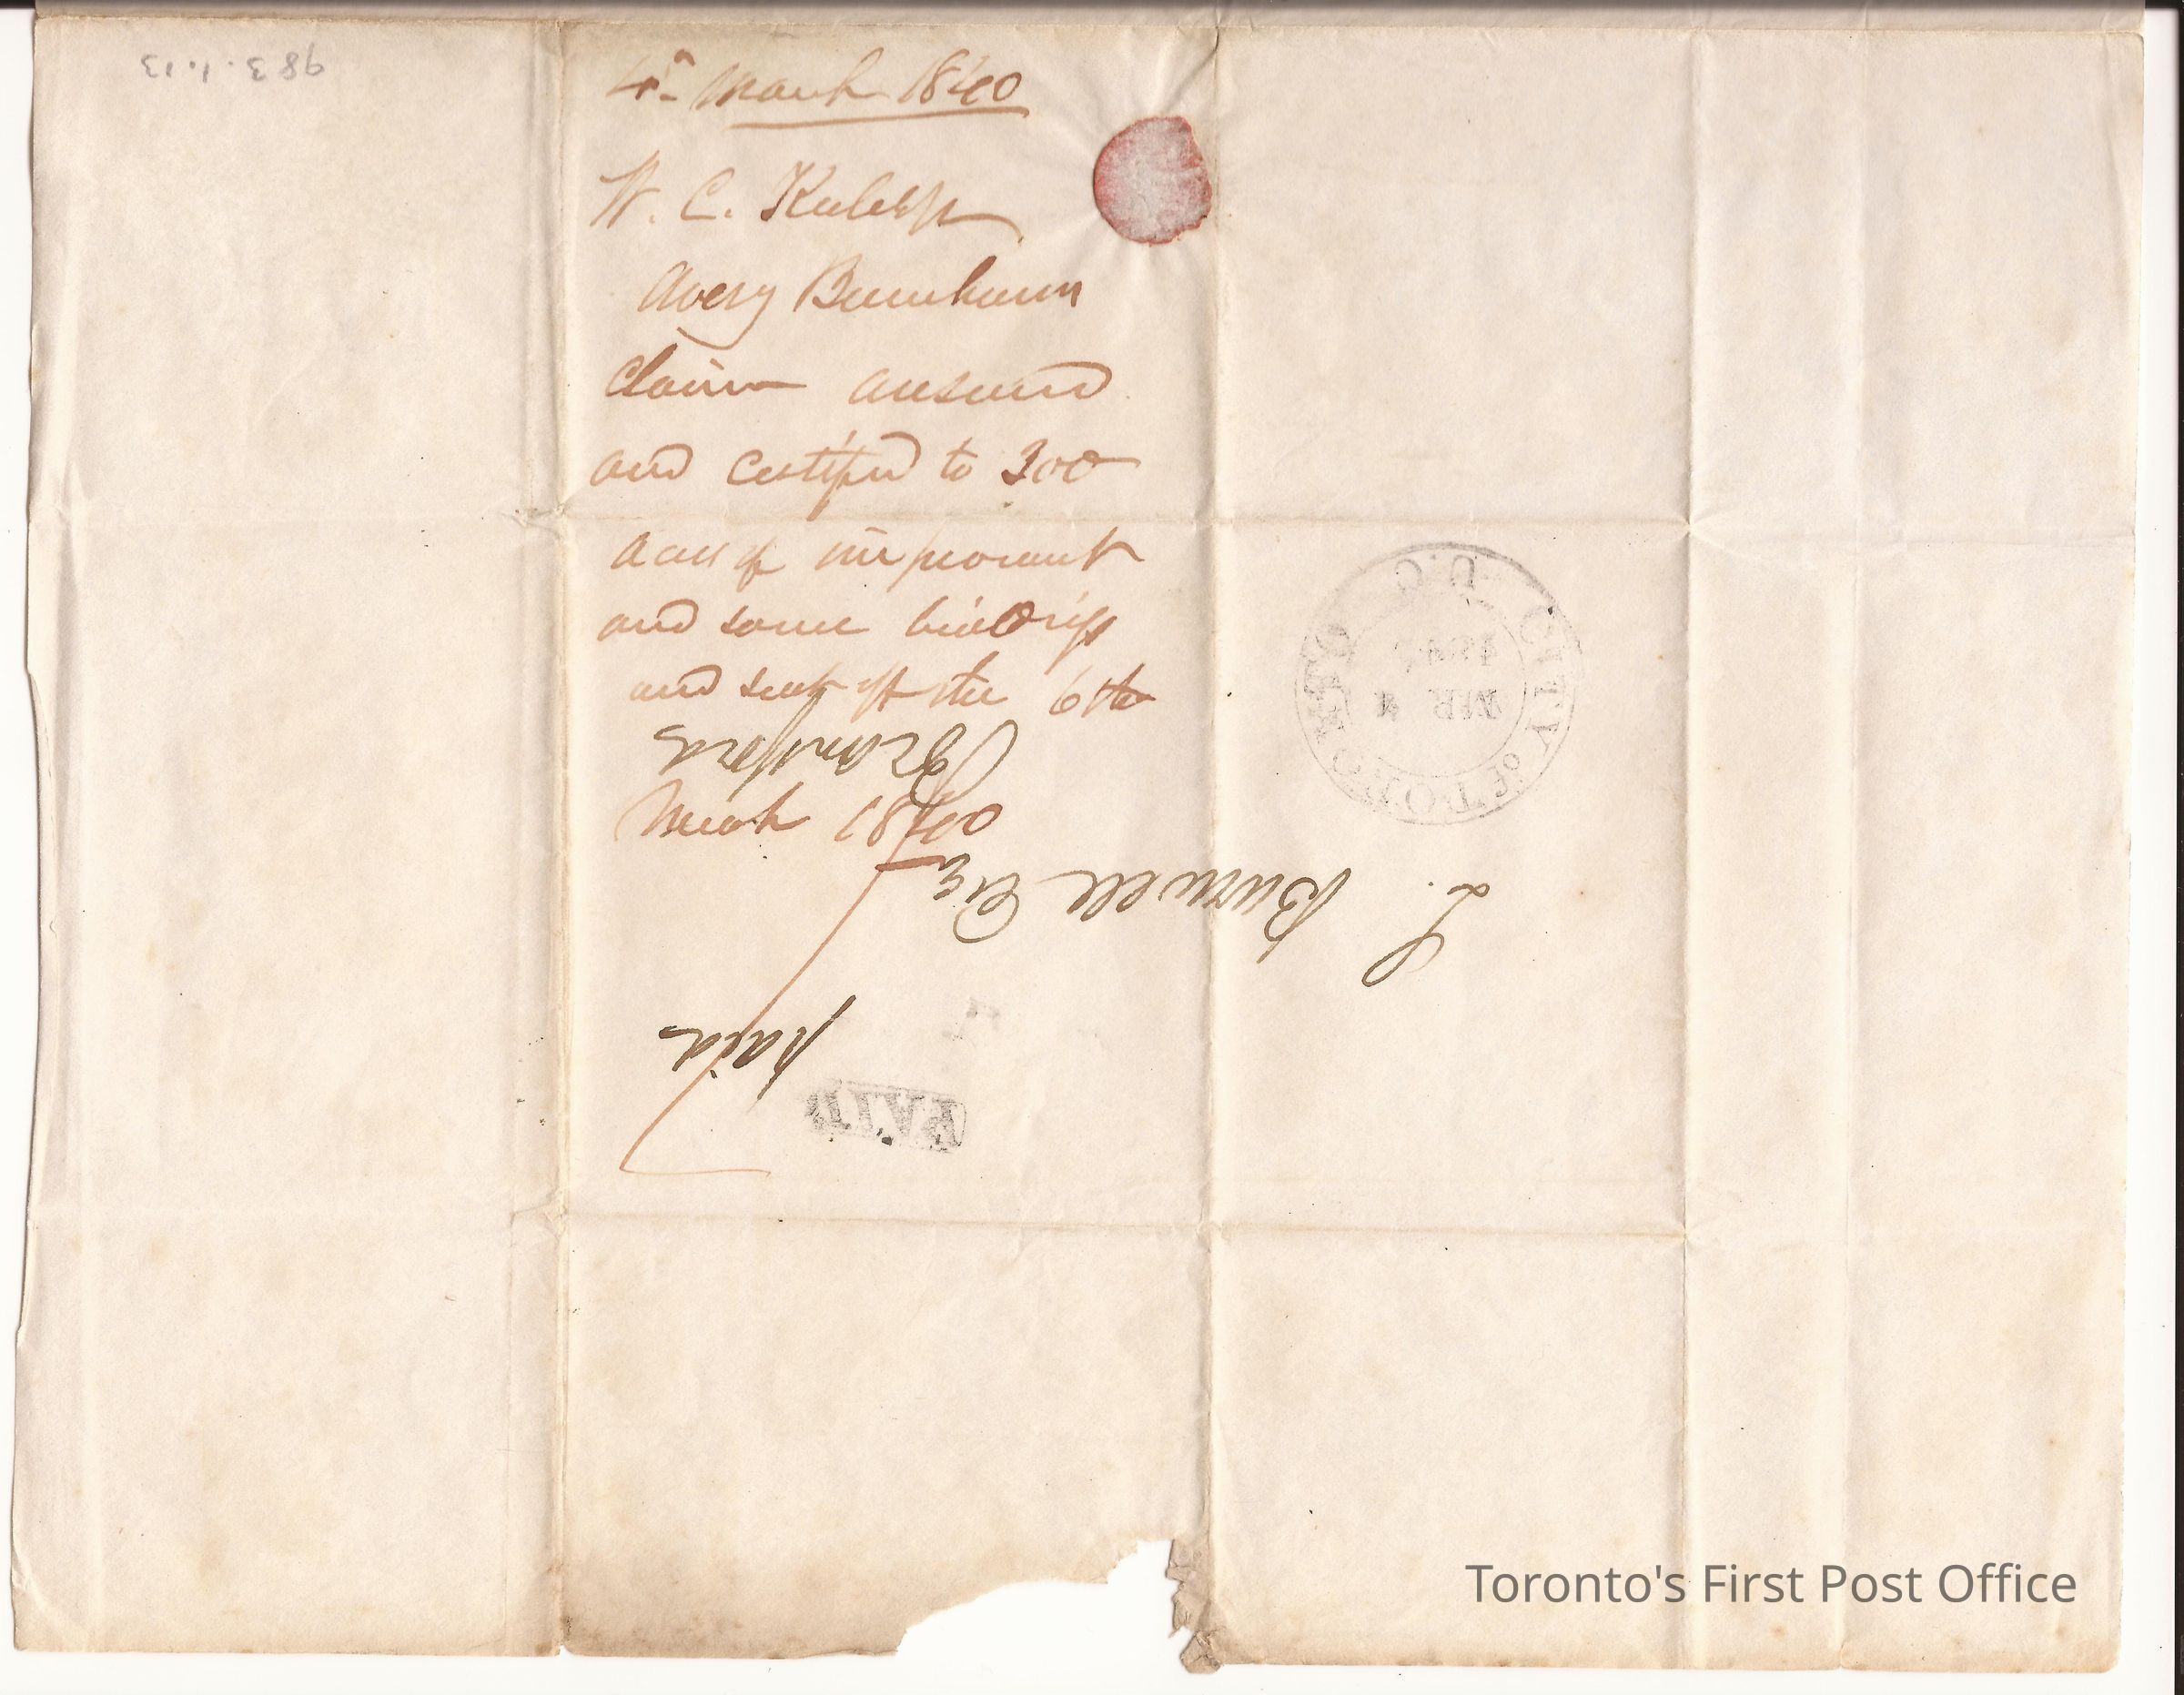 983.1.13
4th March 1840
W. C.
Avery Burnham
Claim answered
and certified to 300
acres of improvement
and some buildings
and sent off the 6th
March 1840
L. Burwell Esq
Brantford
paid
PAID
CITY OF TORONTO
U.C
MR 4
1840
Toronto's First Post Office